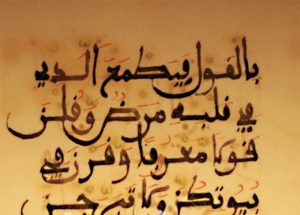 بالقول فيطمع الذي
في قلبه مرض وقلن
قولا معروفا وقرن في
بيوتكن ولا تبرجن